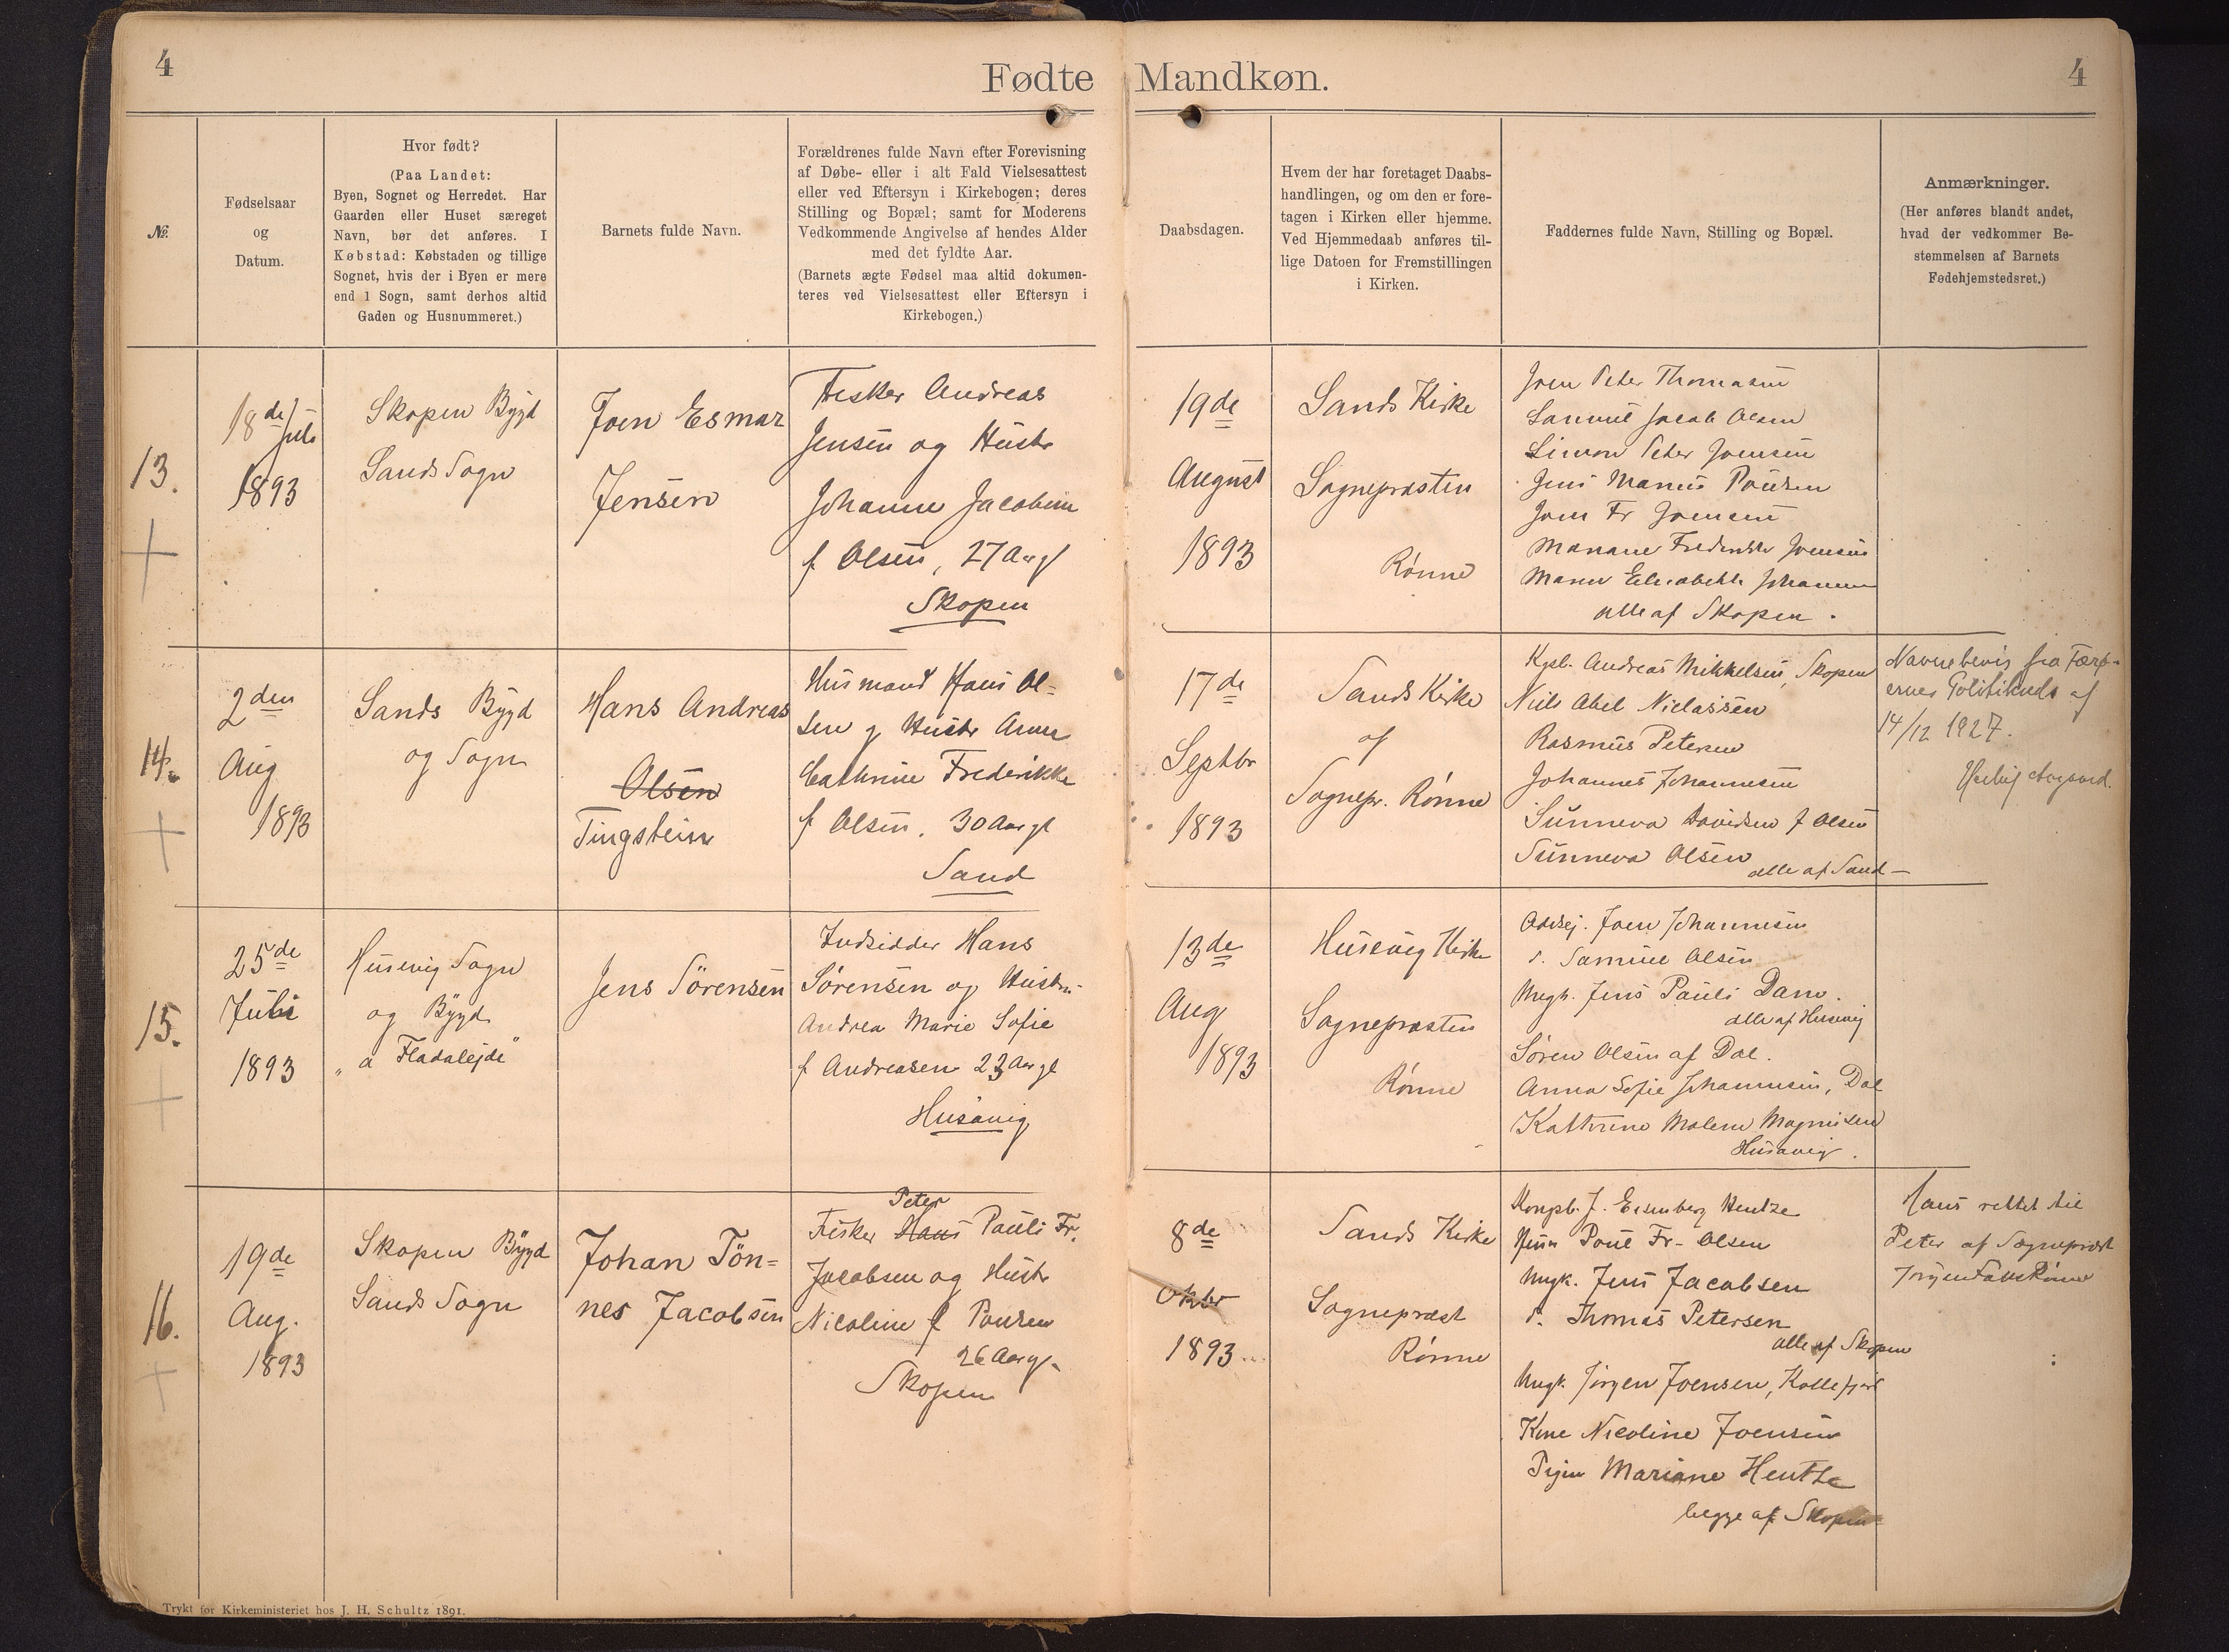 4
Fødte Mandkøn.
4
№.
Fødselsaar
og
Datum.
Hvor født?
(Paa Landet:
Byen, Sognet og Herredet. Har
Gaarden eller Huset særeget
Navn, bør det anføres. I
Købstad: Købstaden og tillige
Sognet, hvis der i Byen er mere
end 1 Sogn, samt derhos altid
Gaden og Husnummeret.)
Barnets fulde Navn.
Forældrenes fulde Navn efter Forevisning
af Døbe- eller i alt Fald Vielsesattest
eller ved Eftersyn i Kirkebogen; deres
Stilling og Bopæl; samt for Moderens
Vedkommende Angivelse af hendes Alder
med det fyldte Aar.
(Barnets ægte Fødsel maa altid dokumen-
teres ved Vielsesattest eller Eftersyn i
Kirkebogen.)
Daabsdagen.
Hvem der har foretaget Daabs-
handlingen, og om den er fore-
tagen i Kirken eller hjemme.
Ved Hjemmedaab anføres til-
lige Datoen for Fremstillingen
i Kirken.
Faddernes fulde Navn, Stilling og Bopæl.
Anmærkninger.
(Her anføres blandt andet,
hvad der vedkommer Be-
stemmelsen af Barnets
Fødehjemstedsret.)
13.
18de Juli
1893
Skopen Bygd
Sands Sogn
Joen Esmar
Jensen
Fisker Andreas
Jensen og Hustr
Johanne Jacobine
f Olsen, 27 Aar gl
Skopen
19de
August
1893
Sands Kirke
Sognepræsten
Rønne
Joen Peter Thomasen
Samuel Jacob Olsen
Simon Peter Joensen
Jens Marius Poulsen
Joen Fr Joensen
Mariane Frederikke Joensen
Maren Elisabeth Johanne
alle af Skopen.
14.
2den
Aug
1893
Sands Bygd
og Sogn
Hans Andreas
Olsen
Tingstein
Husmand Hans Ol-
sen g Hustr Anna
Cathrine Frederikke
f Olsen, 30 Aar gl
Sand
17de
Septbr
1893
Sands Kirke
af
Sognepr. Rønne
Kgsb. Andreas Mikkelsen, Skopen
Niels Abel Niclassen
Rasmus Petersen
Johannes Johannesen
Sunneva Davidsen f Olsen
Sunneva Olsen
alle af Sand
Navnebevis fra Færø-
ernes Politikreds af
14/12 1927.
15.
25de
Juli
1893
Husevig Sogn
og Bygd
"a Fladalejde"
Jens Sörensen
Indsidder Hans
Sørensen og Hustru
Andrea Marie Sofie
f Andreasen 23 Aar gl
Husavig
13de
Aug
1893
Husevig Kirke
Sognepræsten
Rønne
Odelsej. Joen Johannesen
s. Samuel Olsen
Ungk. Jens Pauli Dam.
alle af Husevig
Søren Olsen af Dal.
Anna Sofie Johannesen, Dal
Kathrine Malene Magnusen
Husavig.
16.
19de
Aug.
1893
Skopen Bygd
Sands Sogn
Johan Tön=
nes Jacobsen
Peter
Fisker Hans Pauli Fr.
Jacobsen og Hustr
Nicoline f Poulsen
26 Aar gl
Skopen
8de
Oktbr
1893
Sands Kirke
Sognepræst
Rønne
Kongsb. J. Esenberg Hentze
Poul Fr- Olsen
Ungk. Jens Jacobsen
s. Thomas Petersen
alle af Skopen
Ungk. Jörgen Joensen, Kollefjord
Kone Nicoline Joensen
Pigen Mariane Hentze
begge af Skopen
Hans rettet til
Peter af Sognepræst
Jörgen Falk Rönne
Trykt for Kirkeministeriet hos J. H. Schultz 1891.